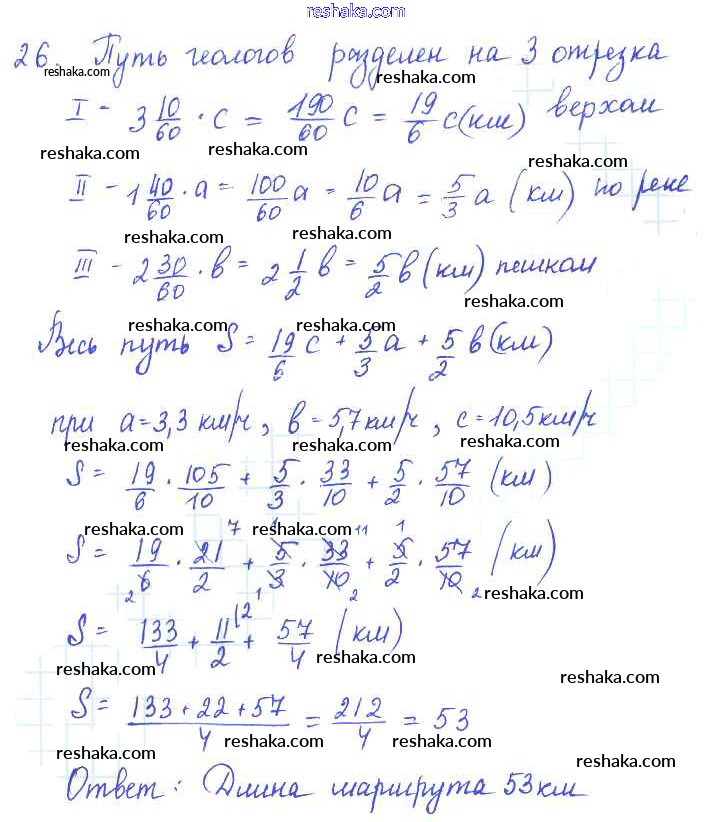 reshaka.com
26. Путь геологов разделен на 3 отрезка
reshaka.com reshaka.com
I - 3 10/60 · c = 190/60 c = 19/6 c (км) верхом
reshaka.com reshaka.com reshaka.com
II - 1 40/60 · a = 100/60 a = 10/6 a = 5/3 a (км) по реке
reshaka.com reshaka.com
III - 2 30/60 · в = 2 1/2 в = 5/2 в (км) пешком
reshaka.com reshaka.com
Весь путь S = 19/6 c + 5/3 a + 5/2 в (км)
reshaka.com
при a = 3,3 км/ч, в = 5,7 км/ч, c = 10,5 км/ч
reshaka.com reshaka.com reshaka.com
S = 19/6 · 105/10 + 5/3 · 33/10 + 5/2 · 57/10 (км)
reshaka.com reshaka.com reshaka.com
7 1 11 1
S = 19/6 · 21/2 + 5/3 · 33/10 + 5/2 · 57/10 (км)
2 1 2 2
reshaka.com
S = 133/4 + 11/2 (2 + 57/4 (км)
reshaka.com reshaka.com reshaka.com
S = 133 + 22 + 57/4 = 212/4 = 53
reshaka.com reshaka.com reshaka.com
Ответ: Длина маршрута 53 км
reshaka.com reshaka.com reshaka.com